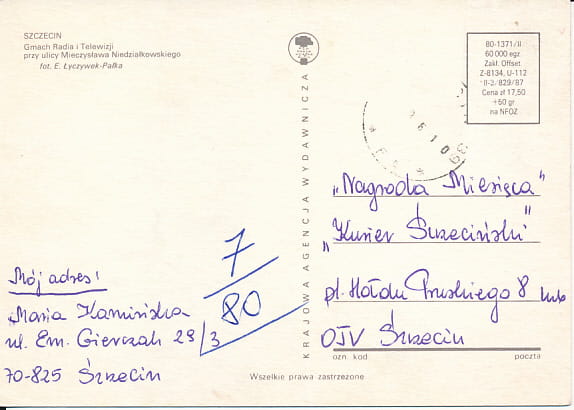 SZCZECIN
Gmach Radia i Telewizji
przy ulicy Mieczysława Niedziałkowskiego
fot. E. Łyczywek-Pałka
KRAJOWA AGENCJA WYDAWNICZA
80-1371/II
60 000 egz.
Zakł. Offset.
Z-8134, U-112
II-2/829/87
Cena zł 17,50
+50 gr
na NFOZ
"Nagroda Miesiąca"
"Kurier Szczeciński"
pl. Hołdu Pruskiego 8 lub
OTV Szczecin
ozn. kod poczta
7
80
Mój adres:
Maria Kamińska
ul. Em. Gierczak 29/3
70-825 Szczecin
Wszelkie prawa zastrzeżone